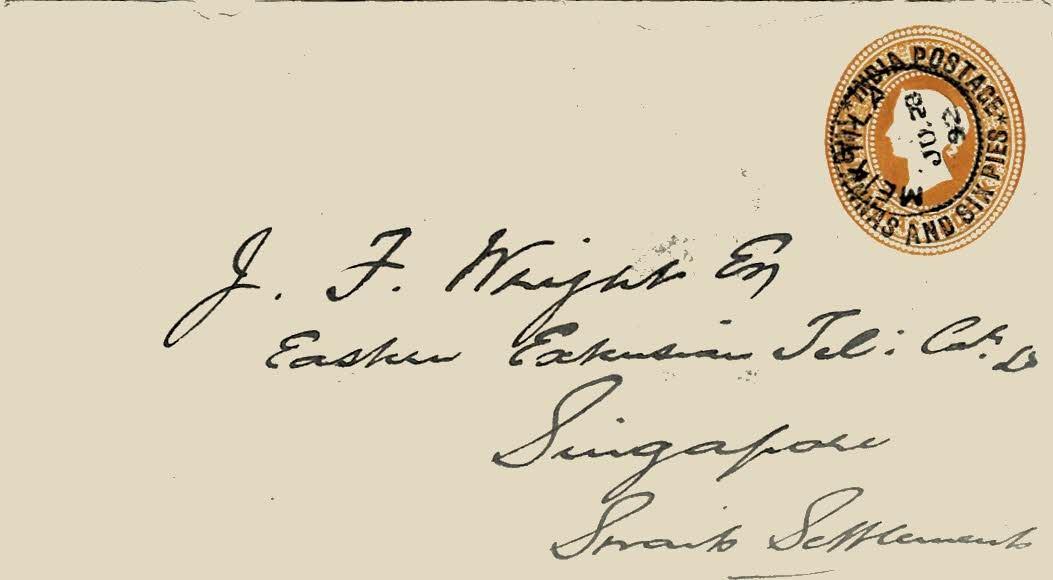 INDIA POSTAGE
ANNAS AND SIX PIES
MEIKTILA
JU.
92
J. F. Wright Esq
Eastern Extension Tel:
Singapore
Straits Settlements